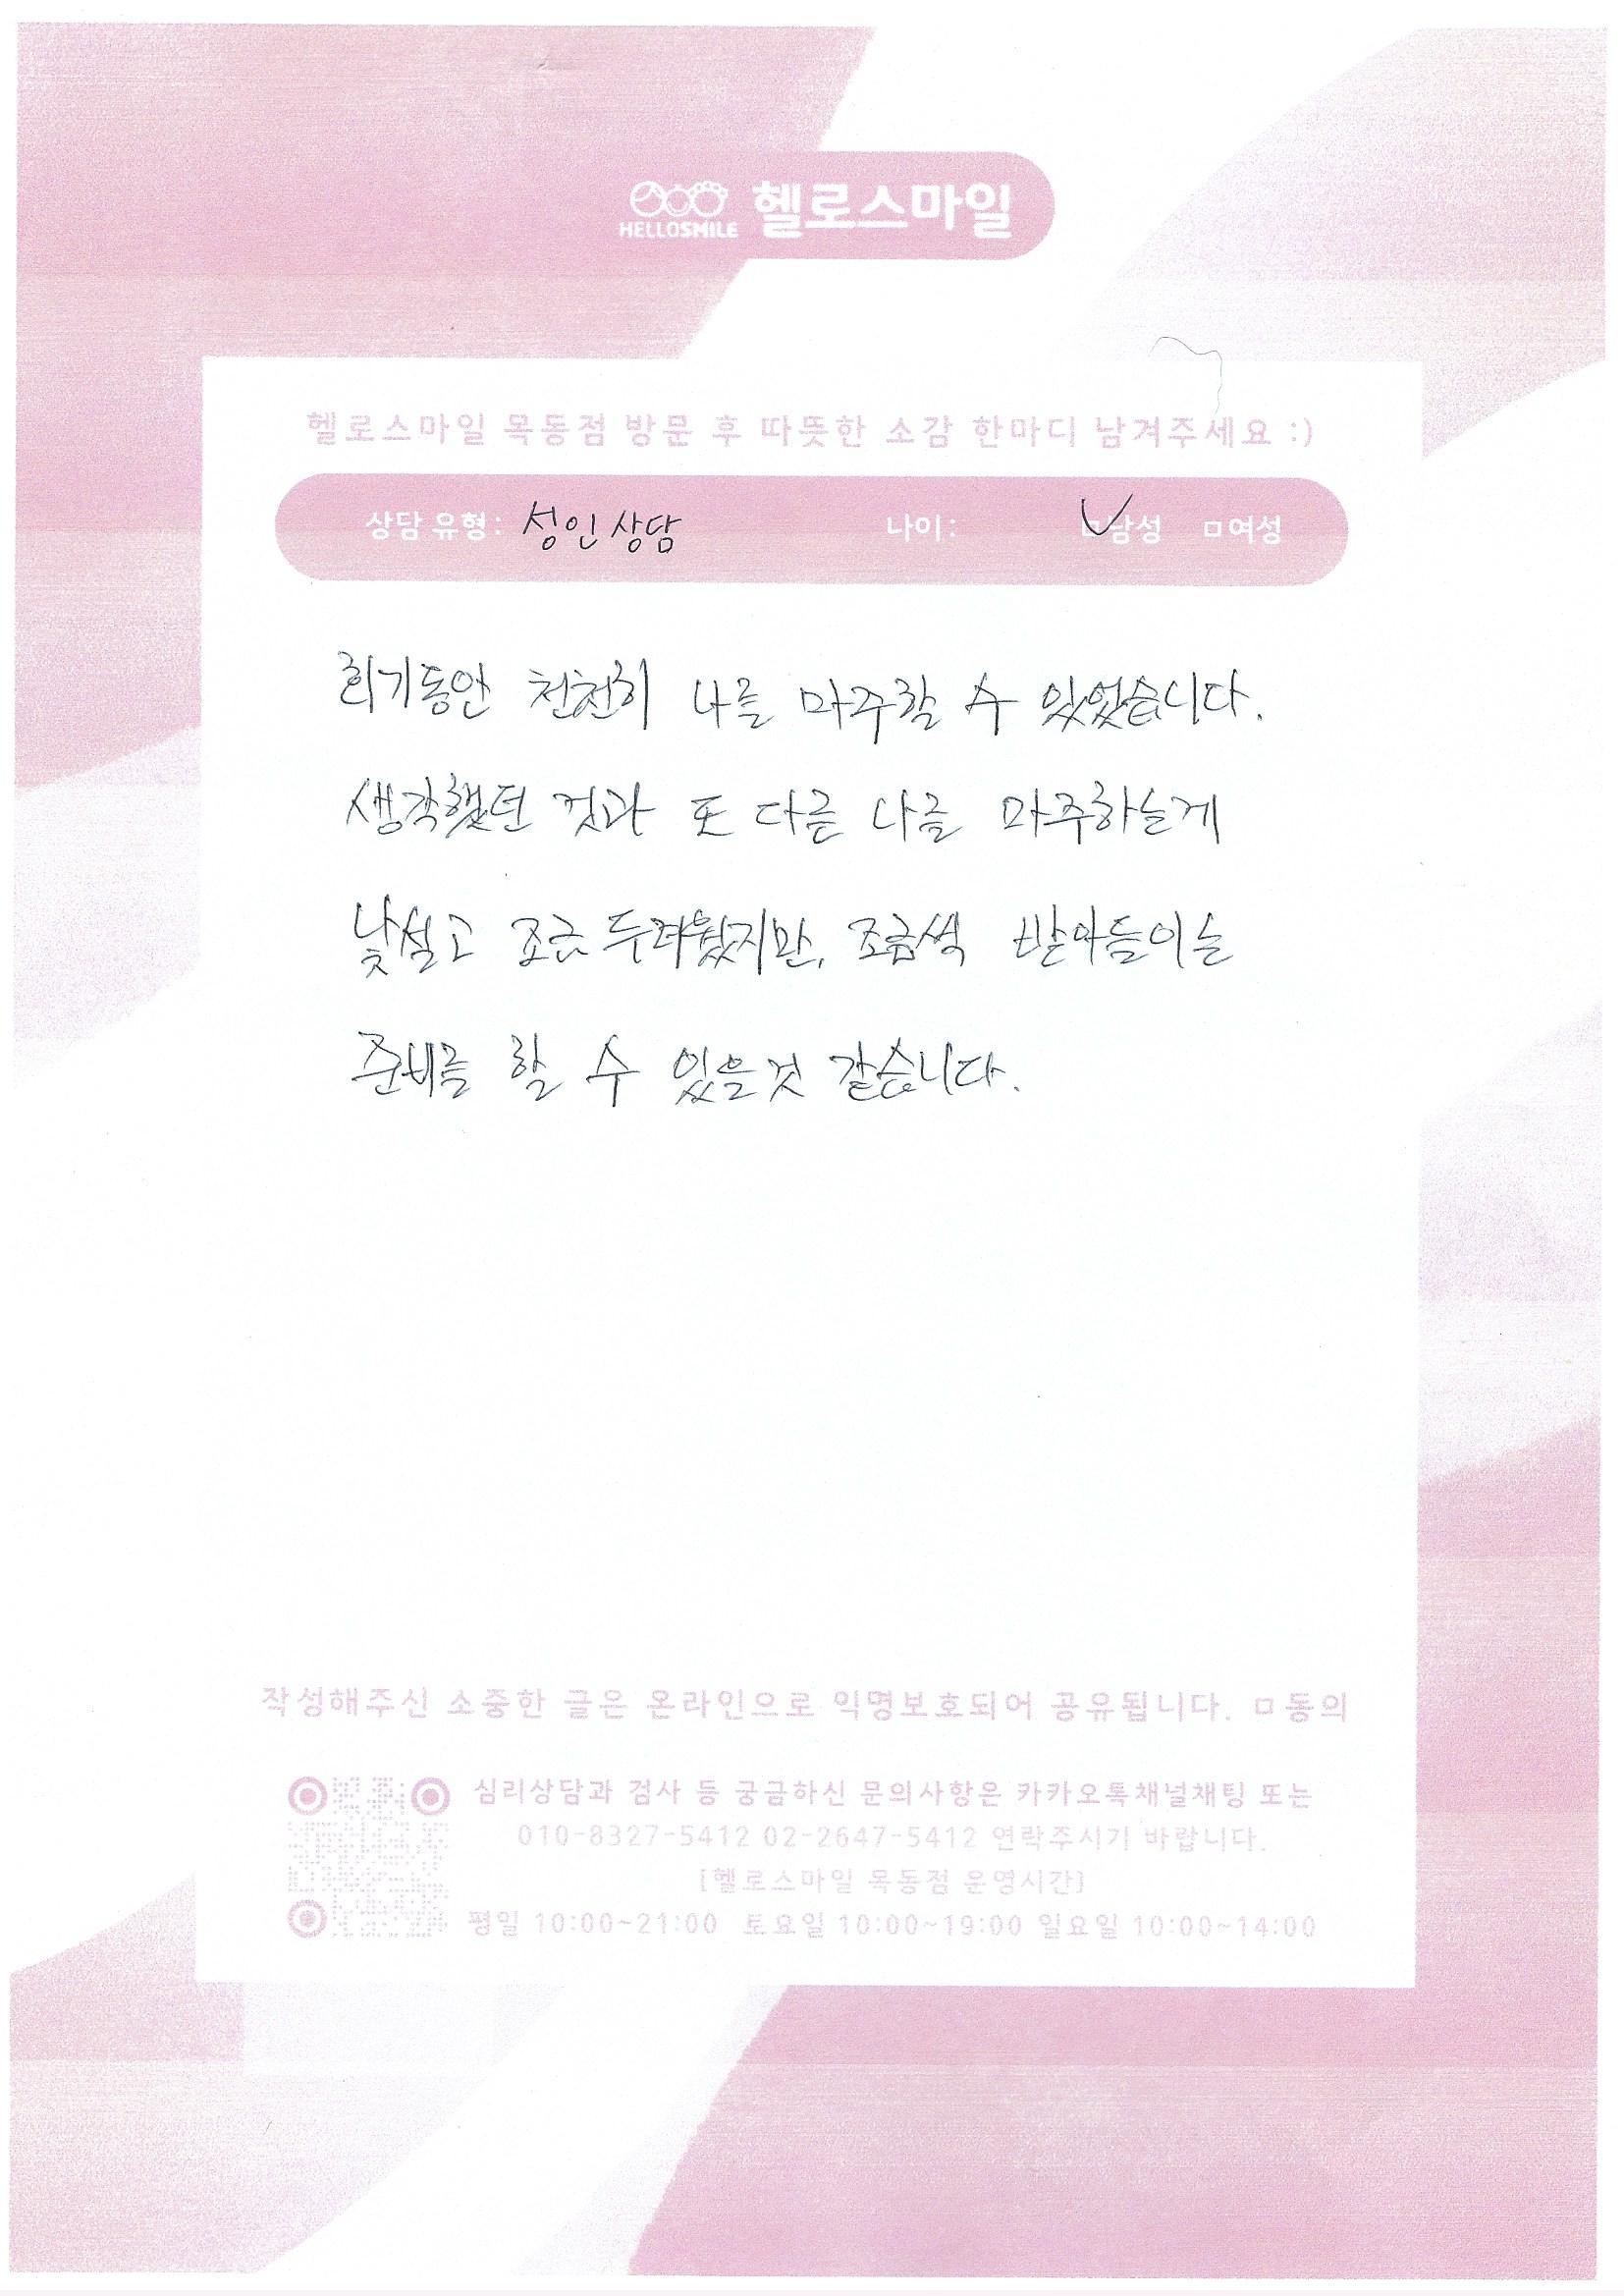 HELLOSMILE 헬로스마일
헬로스마일 목동점 방문 후 따뜻한 소감 한마디 남겨주세요 :)
상담 유형 : 성인상담 나이 : 남성 □여성
회기동안 천천히 나를 마주할 수 있었습니다.
생각했던 것과 또 다른 나를 마주하는게
낯설고 조금 두려웠지만, 조금씩 받아들이는
준비를 할 수 있을것 같습니다.
작성해주신 소중한 글은 온라인으로 익명보호되어 공유됩니다. □동의
심리상담과 검사 등 궁금하신 문의사항은 카카오톡채널채팅 또는
010-8327-5412 02-2647-5412 연락주시기 바랍니다.
[헬로스마일 목동점 운영시간]
평일 10:00~21:00 토요일 10:00~19:00 일요일 10:00~14:00